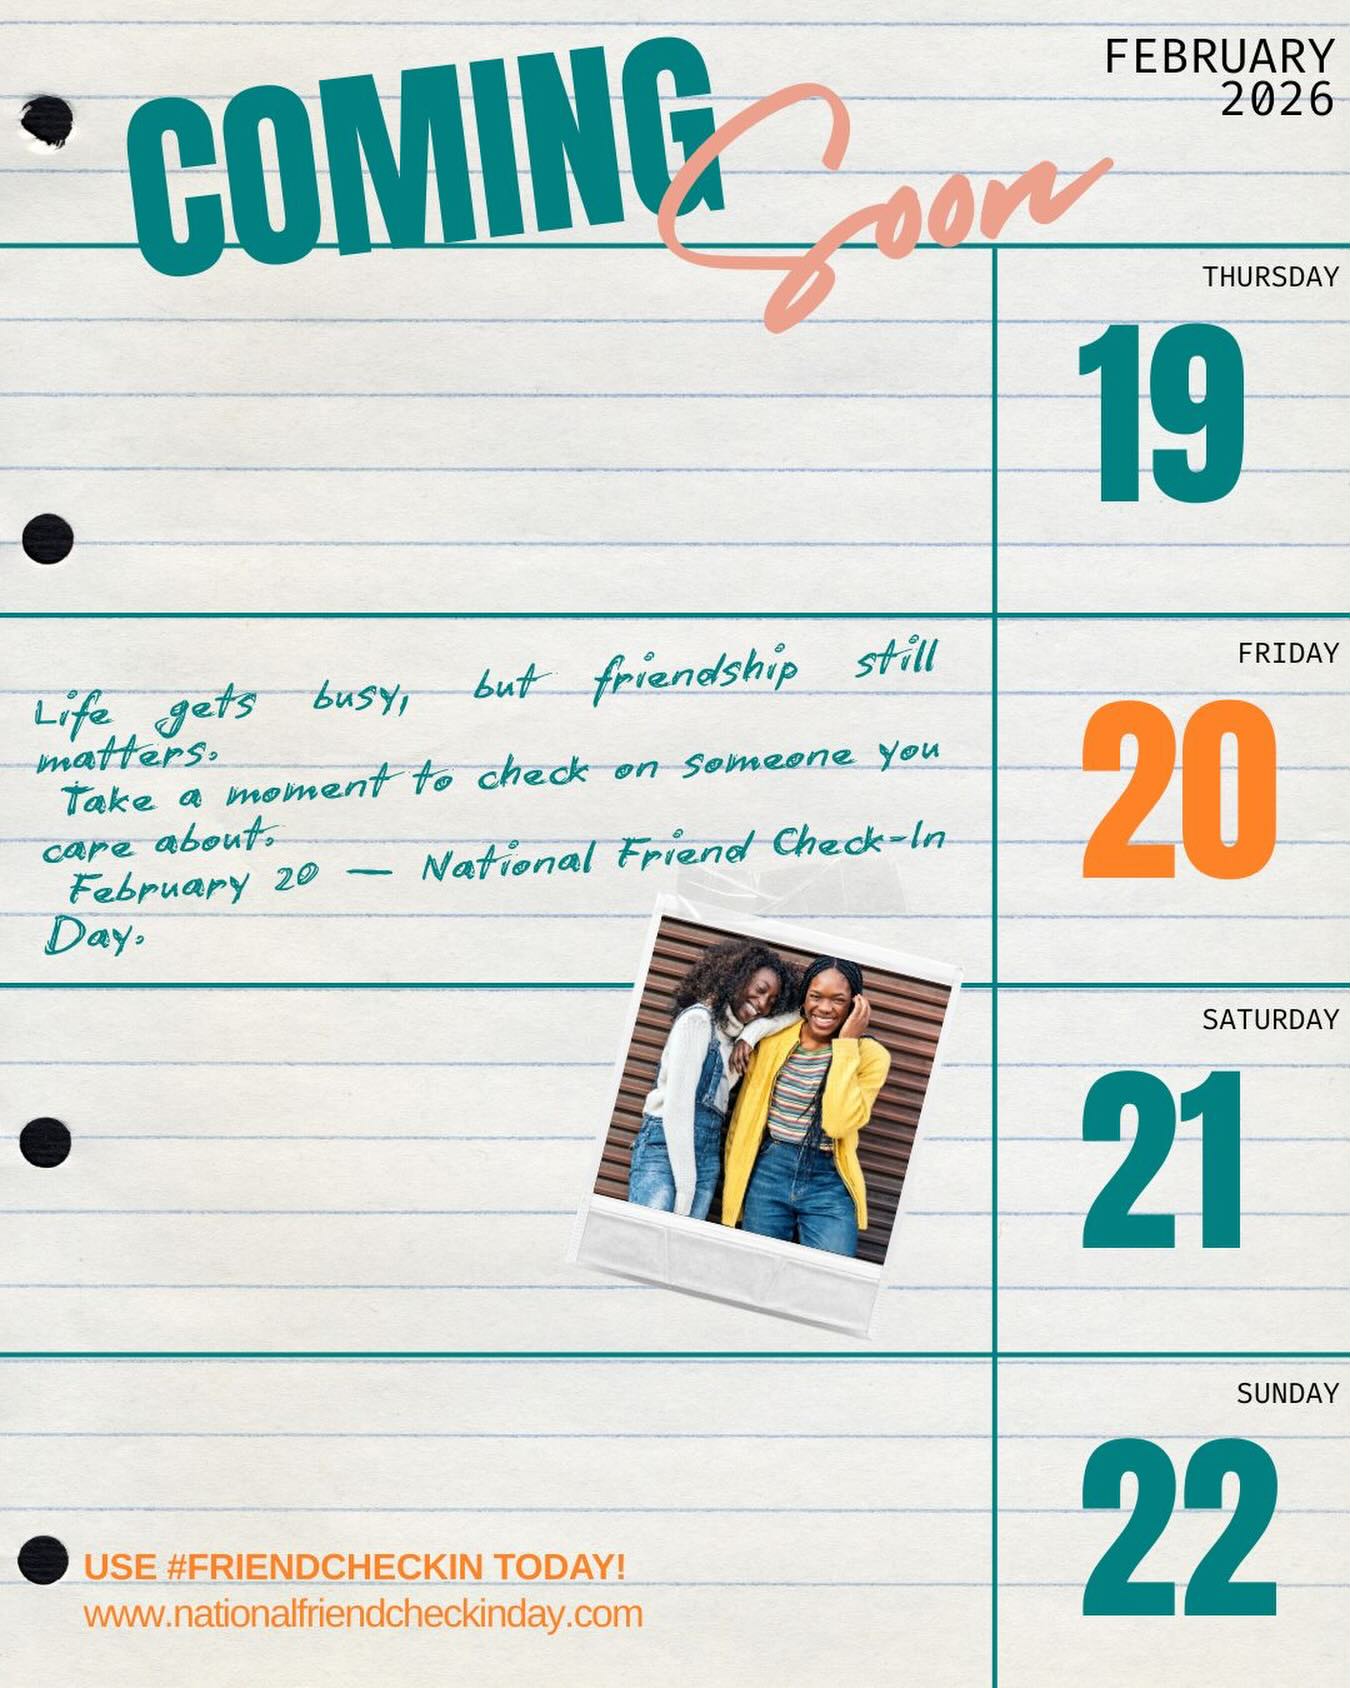 COMING Soon
FEBRUARY
2026
THURSDAY
19
Life gets busy, but friendship still
matters.
Take a moment to check on someone you
care about.
February 20 — National Friend Check-In
Day.
FRIDAY
20
SATURDAY
21
SUNDAY
22
USE #FRIENDCHECKIN TODAY!
www.nationalfriendcheckinday.com